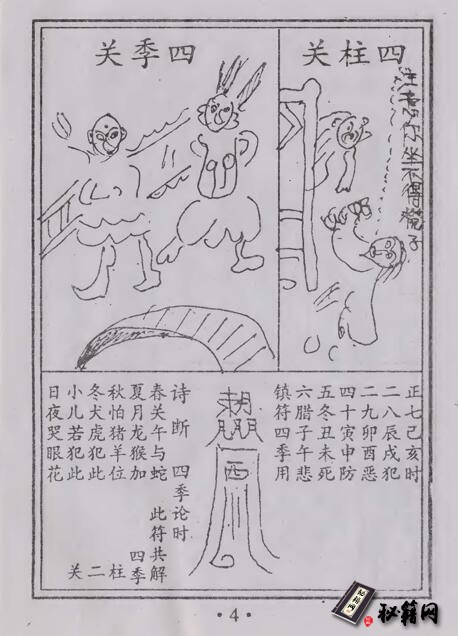 四柱关
注意 坐不得凳子
四季关
正七己亥时
二八辰戌犯
二九卯酉恶
四十寅申防
五冬丑未死
六腊子午悲
镇符四季用
西
诗断 四季论时
春关午与蛇
夏月龙猴加
秋怕猪羊位
冬犬虎犯此
小儿若犯此
日夜哭眼花
此符共解
四季
柱二关
·4·
秘籍网